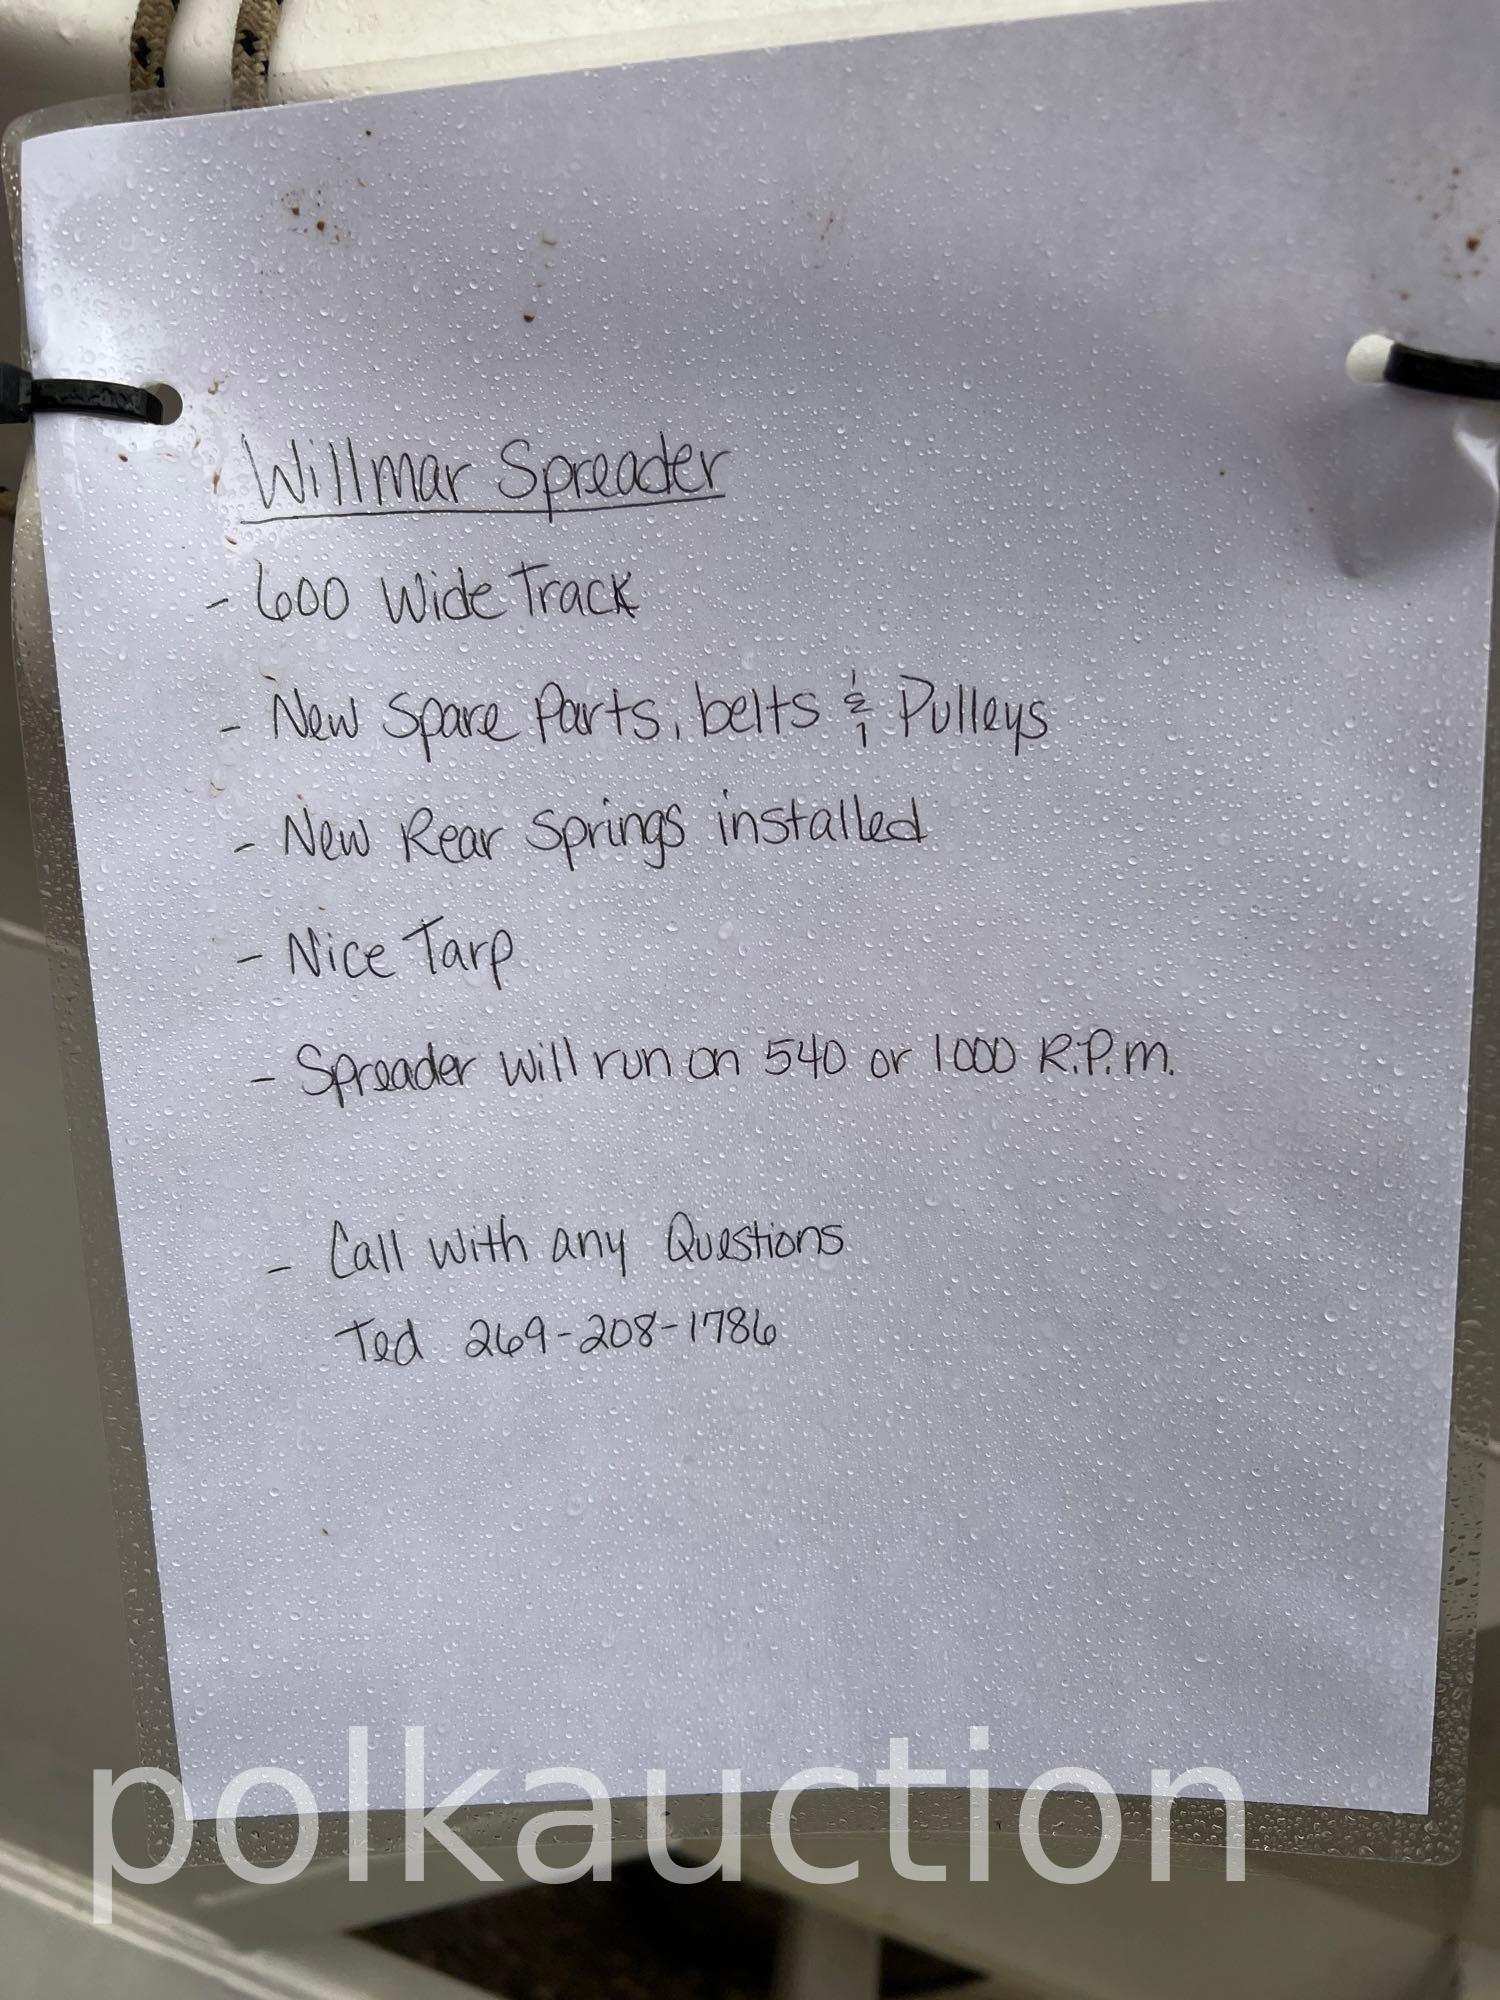 Willmar Spreader
- 600 Wide Track
- New Spare Parts, belts & Pulleys
- New Rear Springs installed
- Nice Tarp
- Spreader will run on 540 or 1000 R.P.m.
- Call with any Questions
Ted 269-208-1786
polkauction